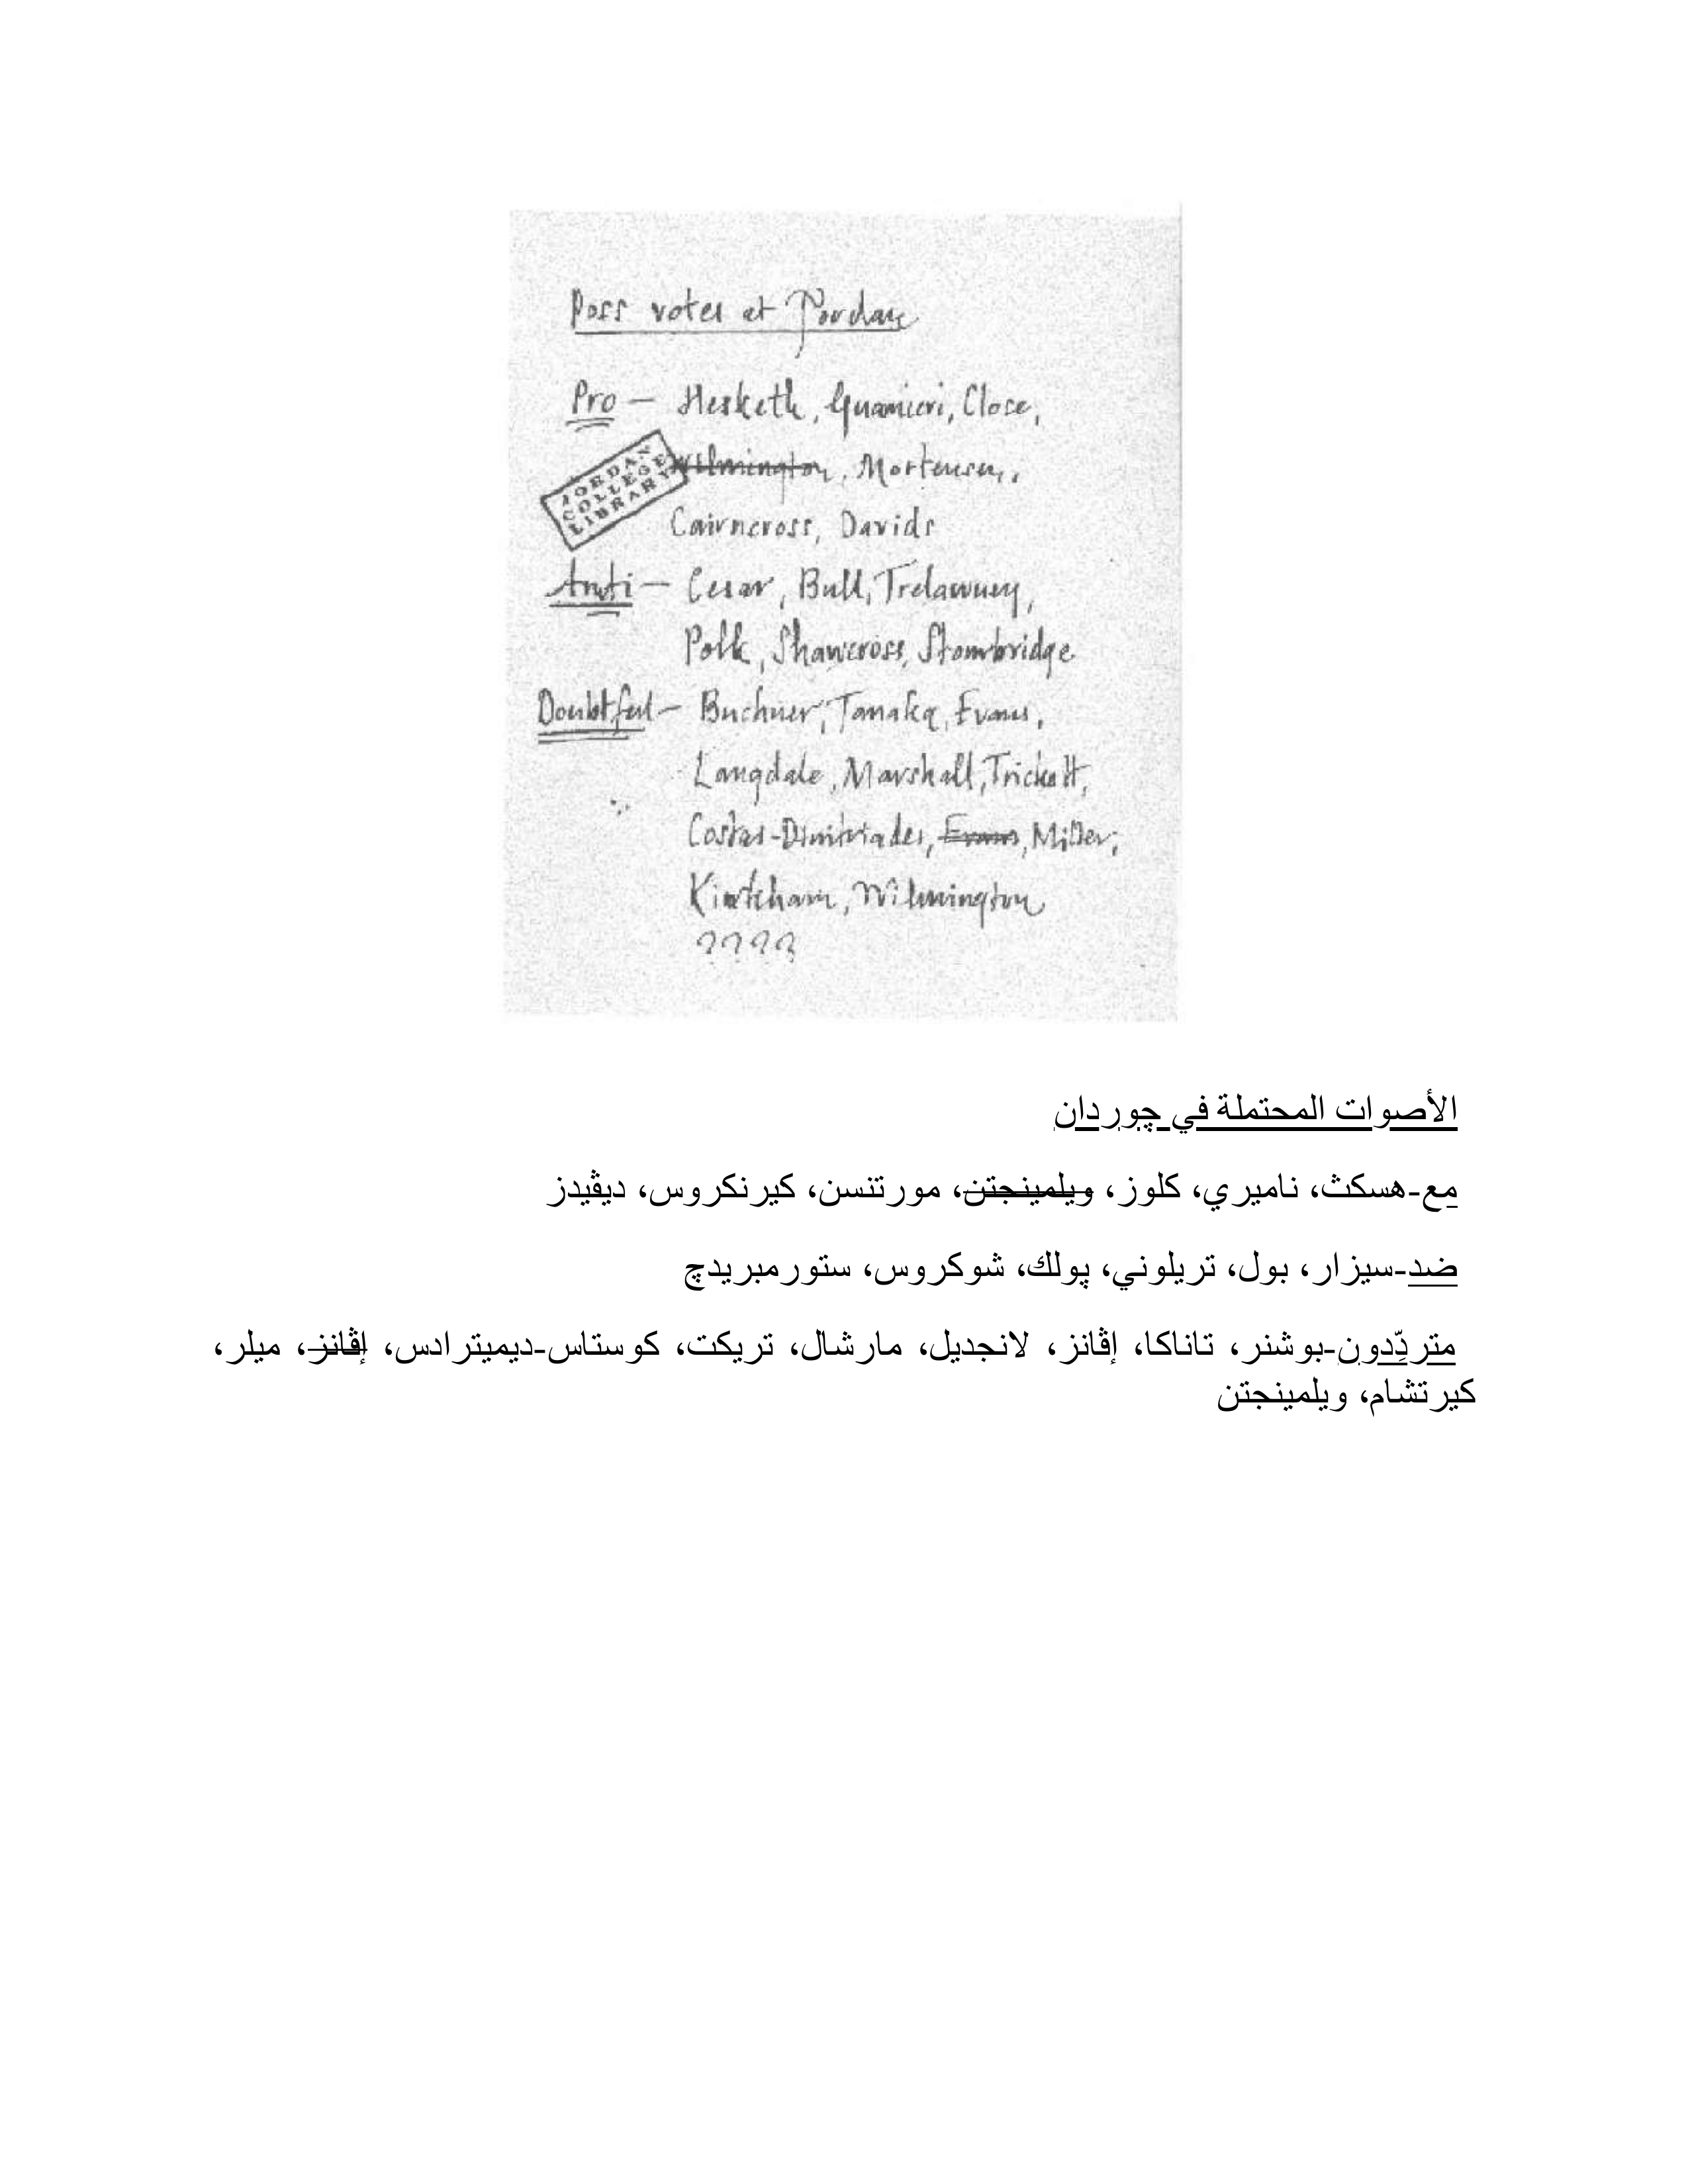 Poss votes at Jordan
Pro — Hesketh, Guarnieri, Close,
Wilmington, Mortensen,
JORDAN
COLLEGE
LIBRARY
Cairncross, Davids
Anti — Cesar, Bull, Trelawney,
Polk, Shawcross, Stormbridge
Doubtful — Buchner, Tanaka, Evans,
Langdale, Marshall, Trickett,
Costas-Dimitriades, Evans, Miller,
Kirtcham, Wilmington
????
الأصوات المحتملة في چوردان
مع-هسكث، ناميري، كلوز، ويلمينجتن، مورتنسن، كيرنكروس، ديڤيدز
ضد-سيزار، بول، تريلوني، پولك، شوكروس، ستورمبريدچ
متردِّدون-بوشنر، تاناكا، إڤانز، لانجديل، مارشال، تريكت، كوستاس-ديميترادس، إڤانز، ميلر،
كيرتشام، ويلمينجتن